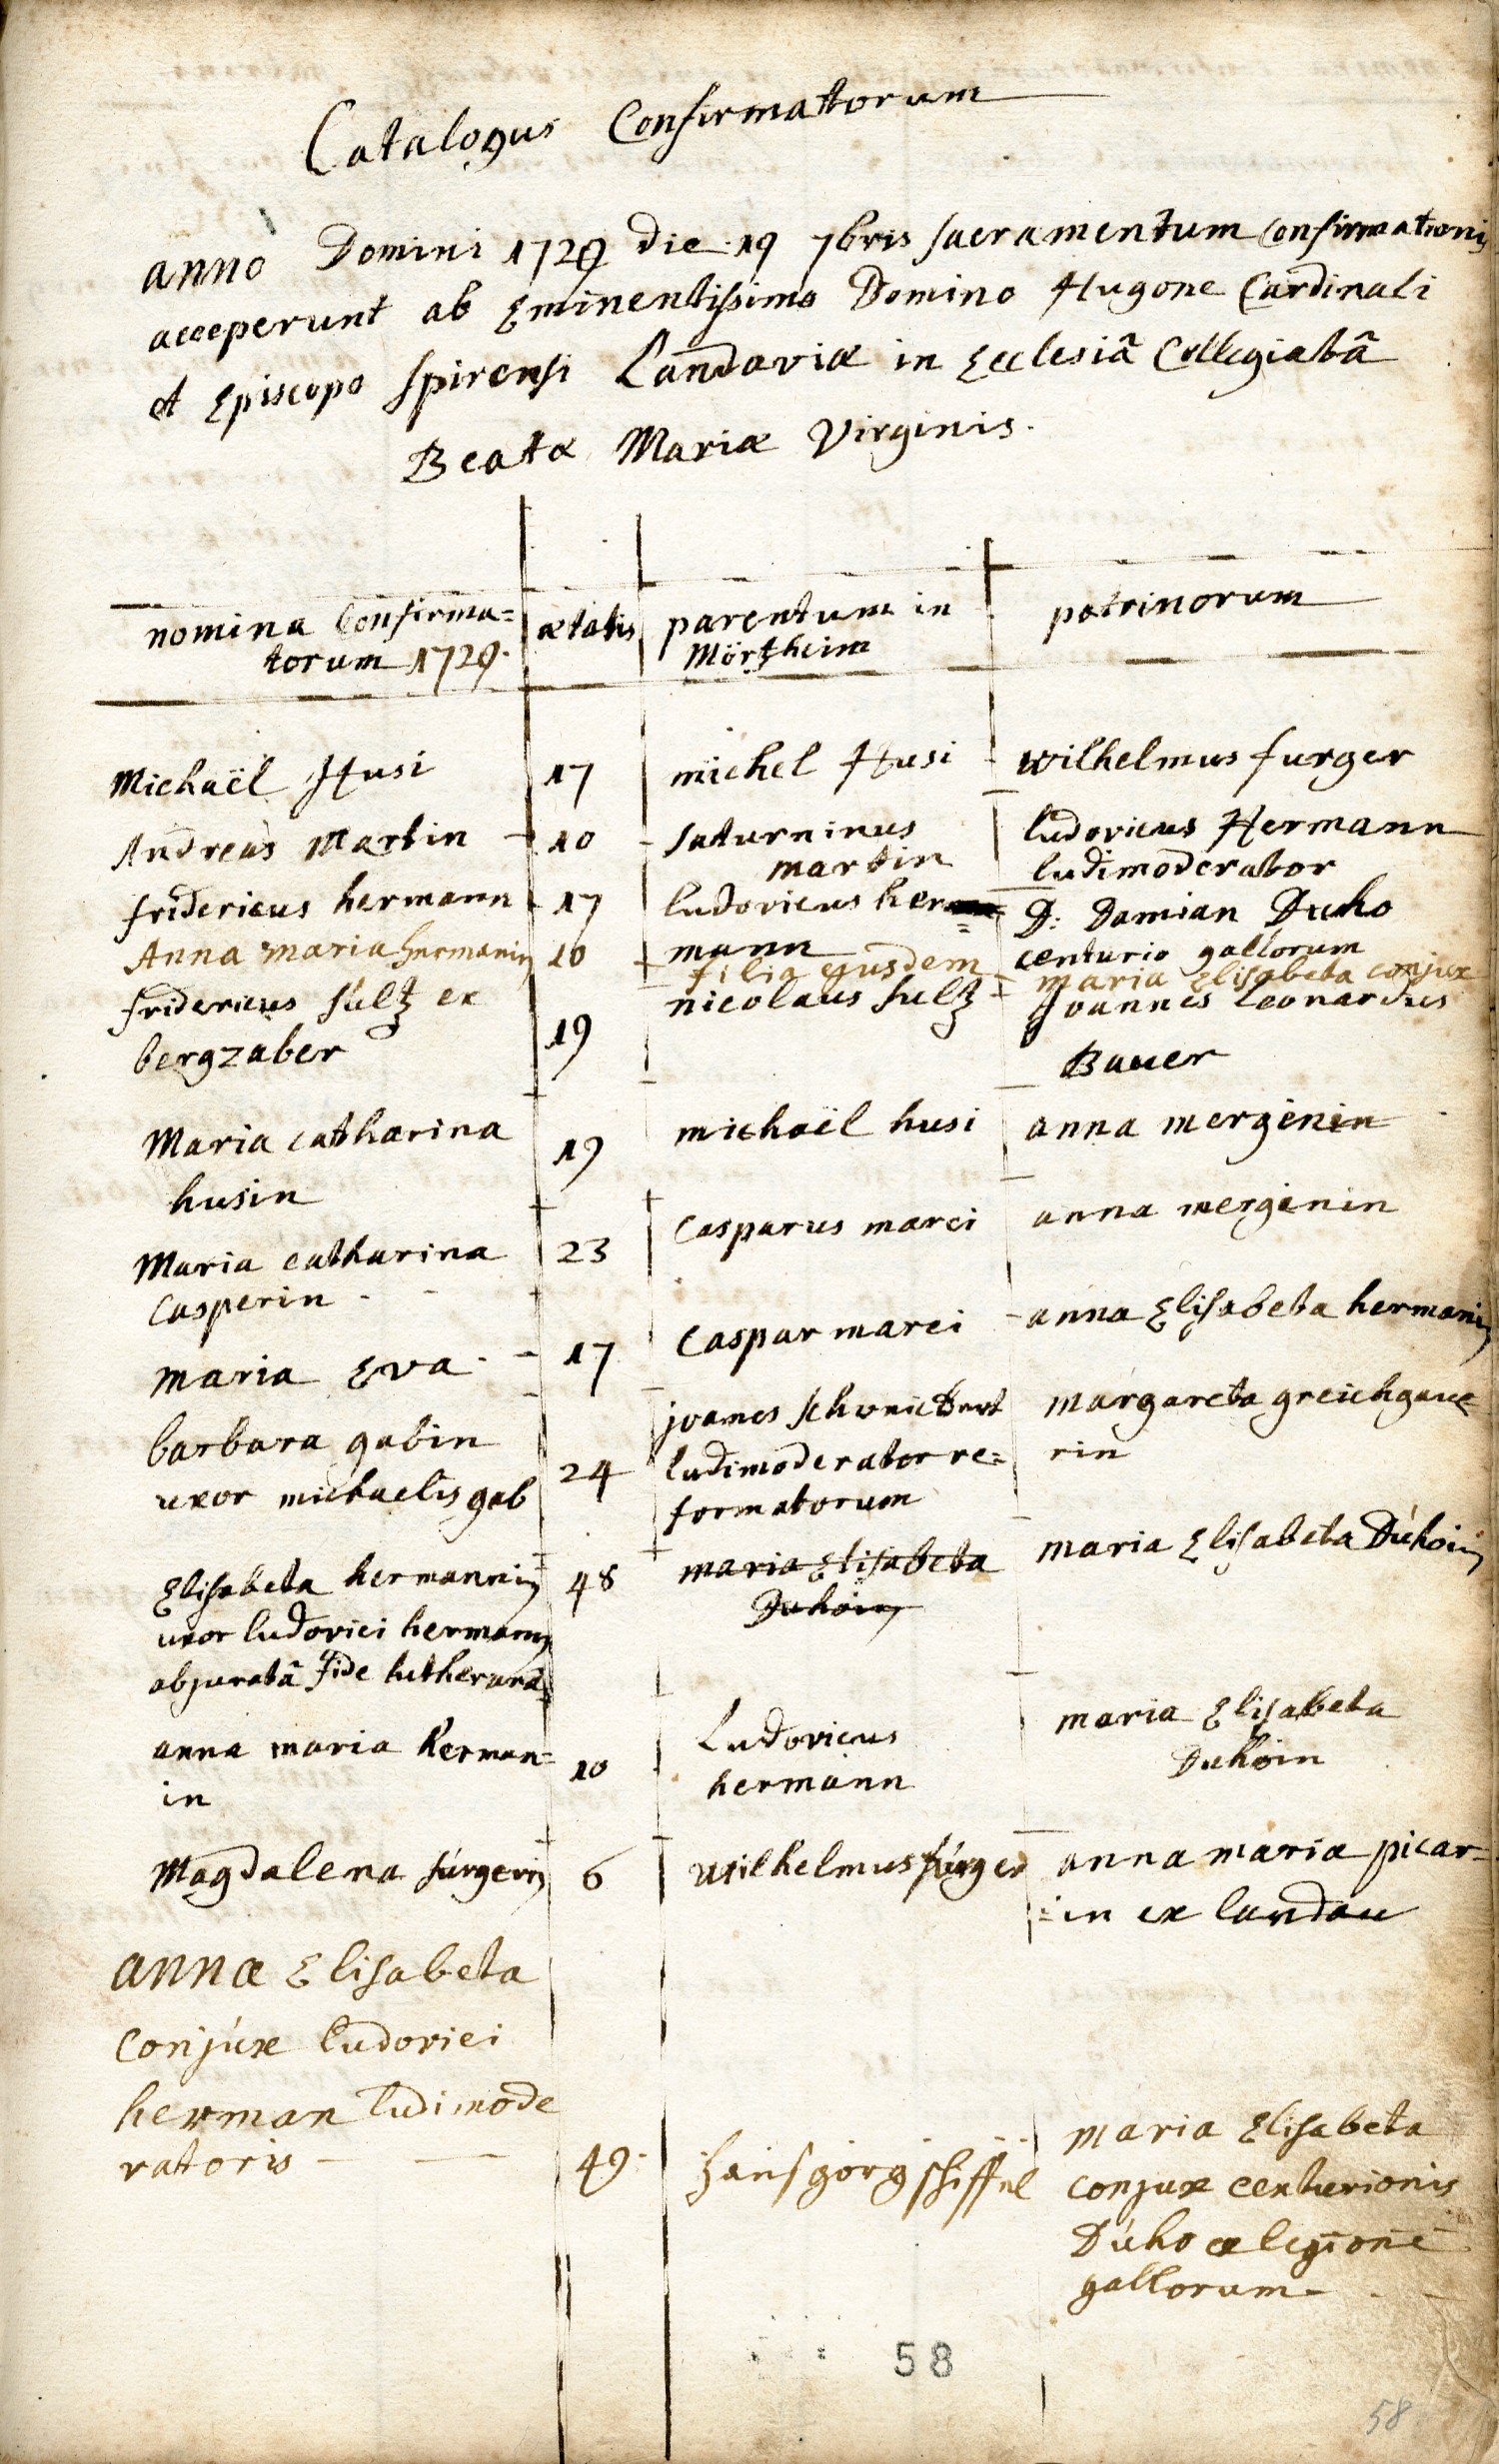 Catalogus Confirmatorum
anno Domini 1729 die 19 7bris sacramentum Confirmationis
acceperunt ab Eminentissimo Domino Hugone Cardinali
et Episcopo Spirensi Landaviæ in Ecclesiâ Collegiatâ
Beatæ Mariæ Virginis.
nomina Confirma= ætatis parentum in patrinorum
torum 1729. Mörtzheim
Michaël Husi 17 michel Husi wilhelmus furger
Andreas Martin 10 saturninus ludovicus Hermann
martin ludimoderator
fridericus hermann 17 ludovicus her= D: Damian Duho
mann centurio gallorum
Anna maria hermanin 10 filia ejusdem maria Elisabeta conjux
fridericus sultz ex 19 nicolaus sultz Joannes Leonardus
bergzaber Bauer
Maria catharina 19 michaël husi anna merginin
husin
Maria catharina 23 Casparus marci anna merginin
Casperin
maria Eva 17 Caspar marci anna Elisabeta hermanin
barbara gabin 24 joanes margareta greichgaue
uxor michaelis gab ludimoderator re= rin
formatorum
Elisabeta hermannin 48 maria Elisabeta maria Elisabeta Dúhoin
uxor ludovici hermann Duhoin
abjuratâ fide lutherana
anna maria herman= 10 Ludovicus maria Elisabeta
in hermann Duhoin
Magdalena fúrgerin 6 wilhelmus fúrger anna maria picar=
=in ex landau
anna Elisabeta
Conjúx ludovici
herman ludimode
ratoris 49. hans görg maria Elisabeta
conjux centurionis
Dúho ex legione
gallorum
58
58